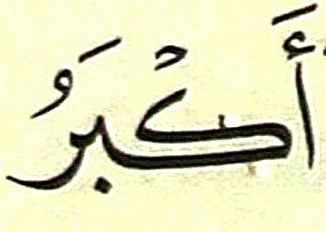 أَكْبَرُ